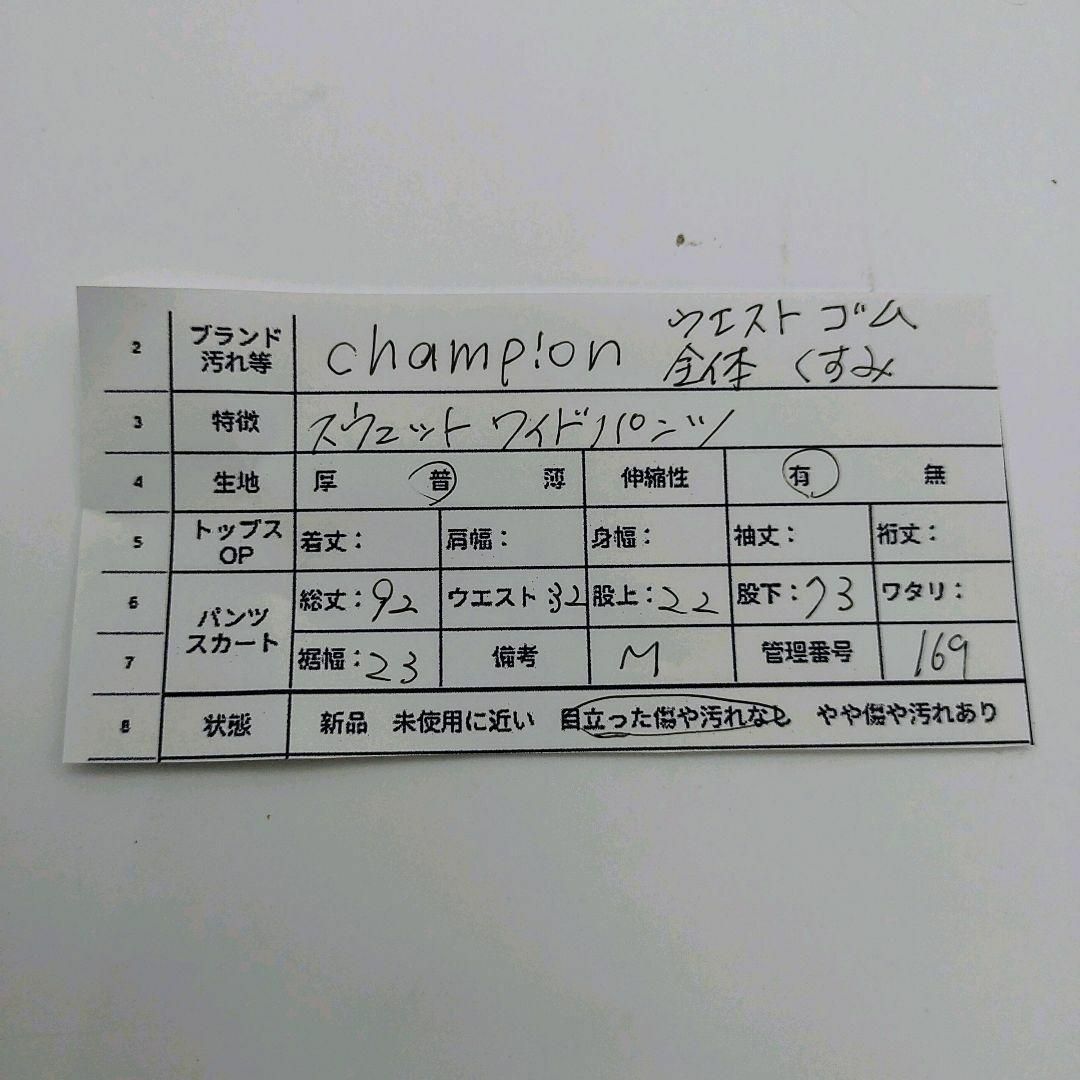 2 ブランド 汚れ等 champion ウエスト ゴム 全体 くすみ
3 特徴 スウェット ワイドパンツ
4 生地 厚 普 薄 伸縮性 有 無
5 トップス OP 着丈: 肩幅: 身幅: 袖丈: 裄丈:
6 パンツ スカート 総丈:92 ウエスト:32 股上:22 股下:73 ワタリ:
7 裾幅:23 備考 M 管理番号 169
8 状態 新品 未使用に近い 目立った傷や汚れなし やや傷や汚れあり